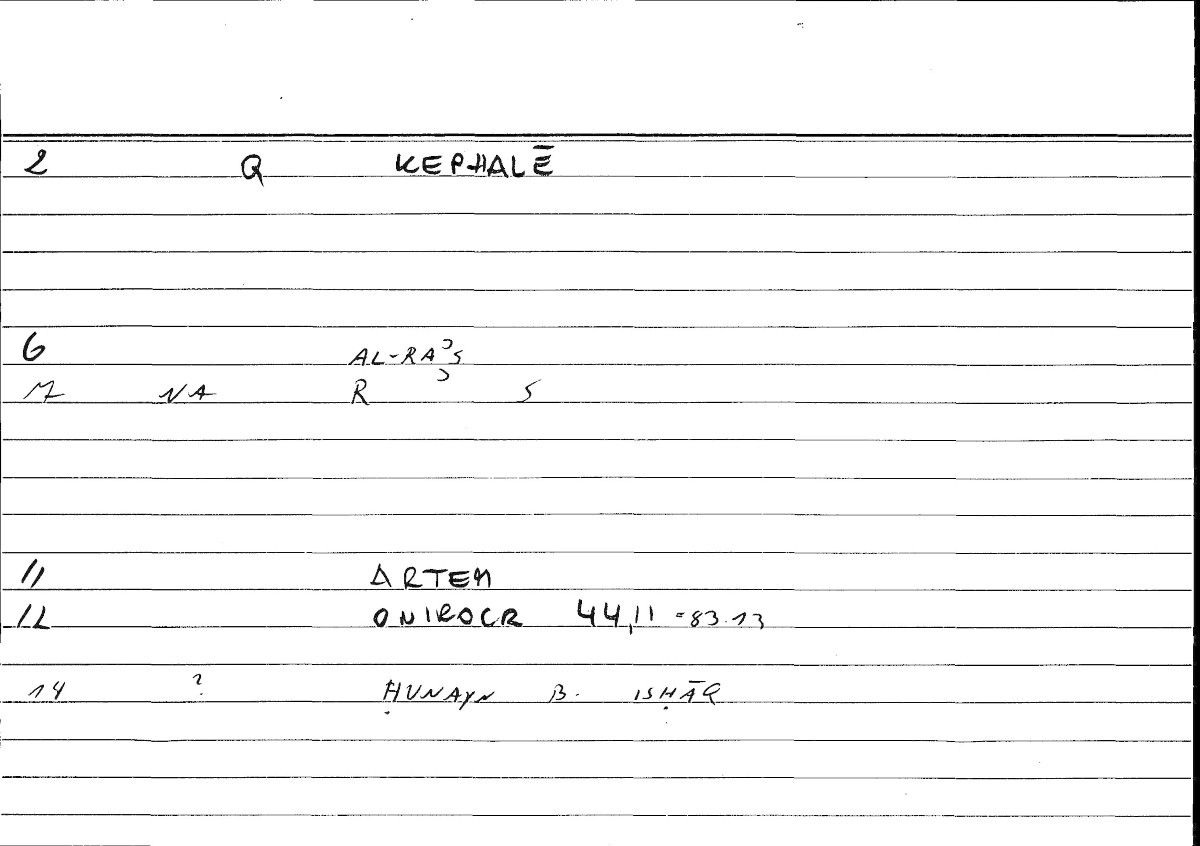 2 Q KEPHALĒ
6 AL-RAʾS
7 NA R ʾ S
11 ARTEM
12 ONIROCR 44,11 =83.13
14 ? ḤUNAYN B. ISḤĀQ